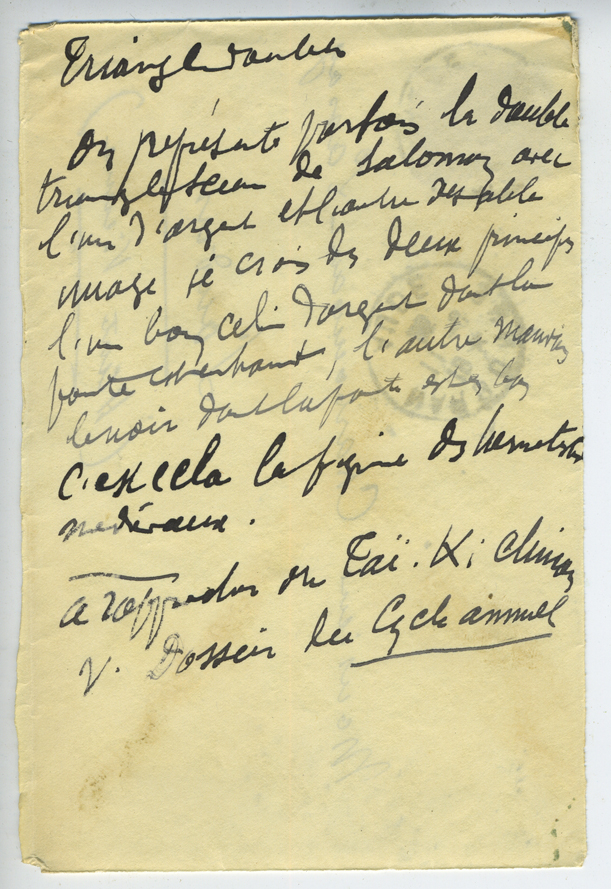 Triangle double
On représente parfois le double
triangle sceau de Salomon avec
l'un d'argent et l'autre de sable
image je crois des deux principes
l'un bon celui d'argent dont la
pointe est en haut, l'autre mauvais
le noir dont la pointe est en bas
C'est cela la figure des hermetistes
médiévaux.
à rapprocher du Taï. Ki chinois
V. Dossier du Cycle annuel